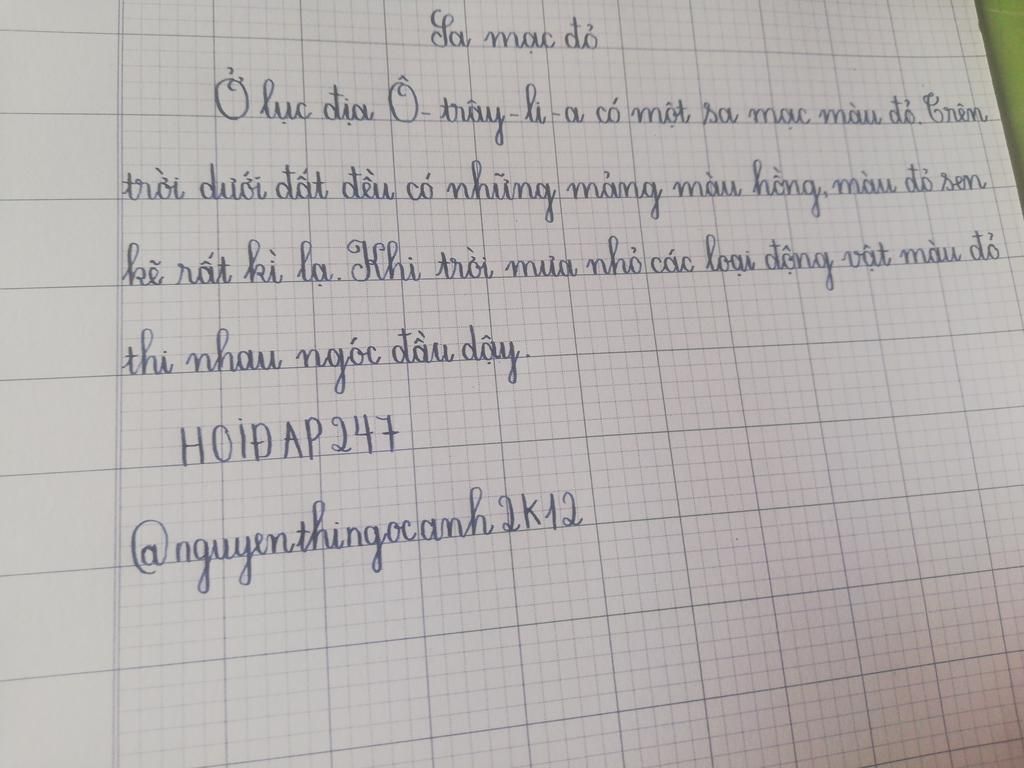 Sa mạc đỏ
Ở lục địa Ô-trây-li-a có một sa mạc màu đỏ. Trên
trời dưới đất đều có những mảng màu hồng, màu đỏ sen
kẽ rất kì lạ. Khi trời mưa nhỏ các loại động vật màu đỏ
thi nhau ngóc đầu dậy.
HOIĐAP247
@nguyenthingocanh2K12